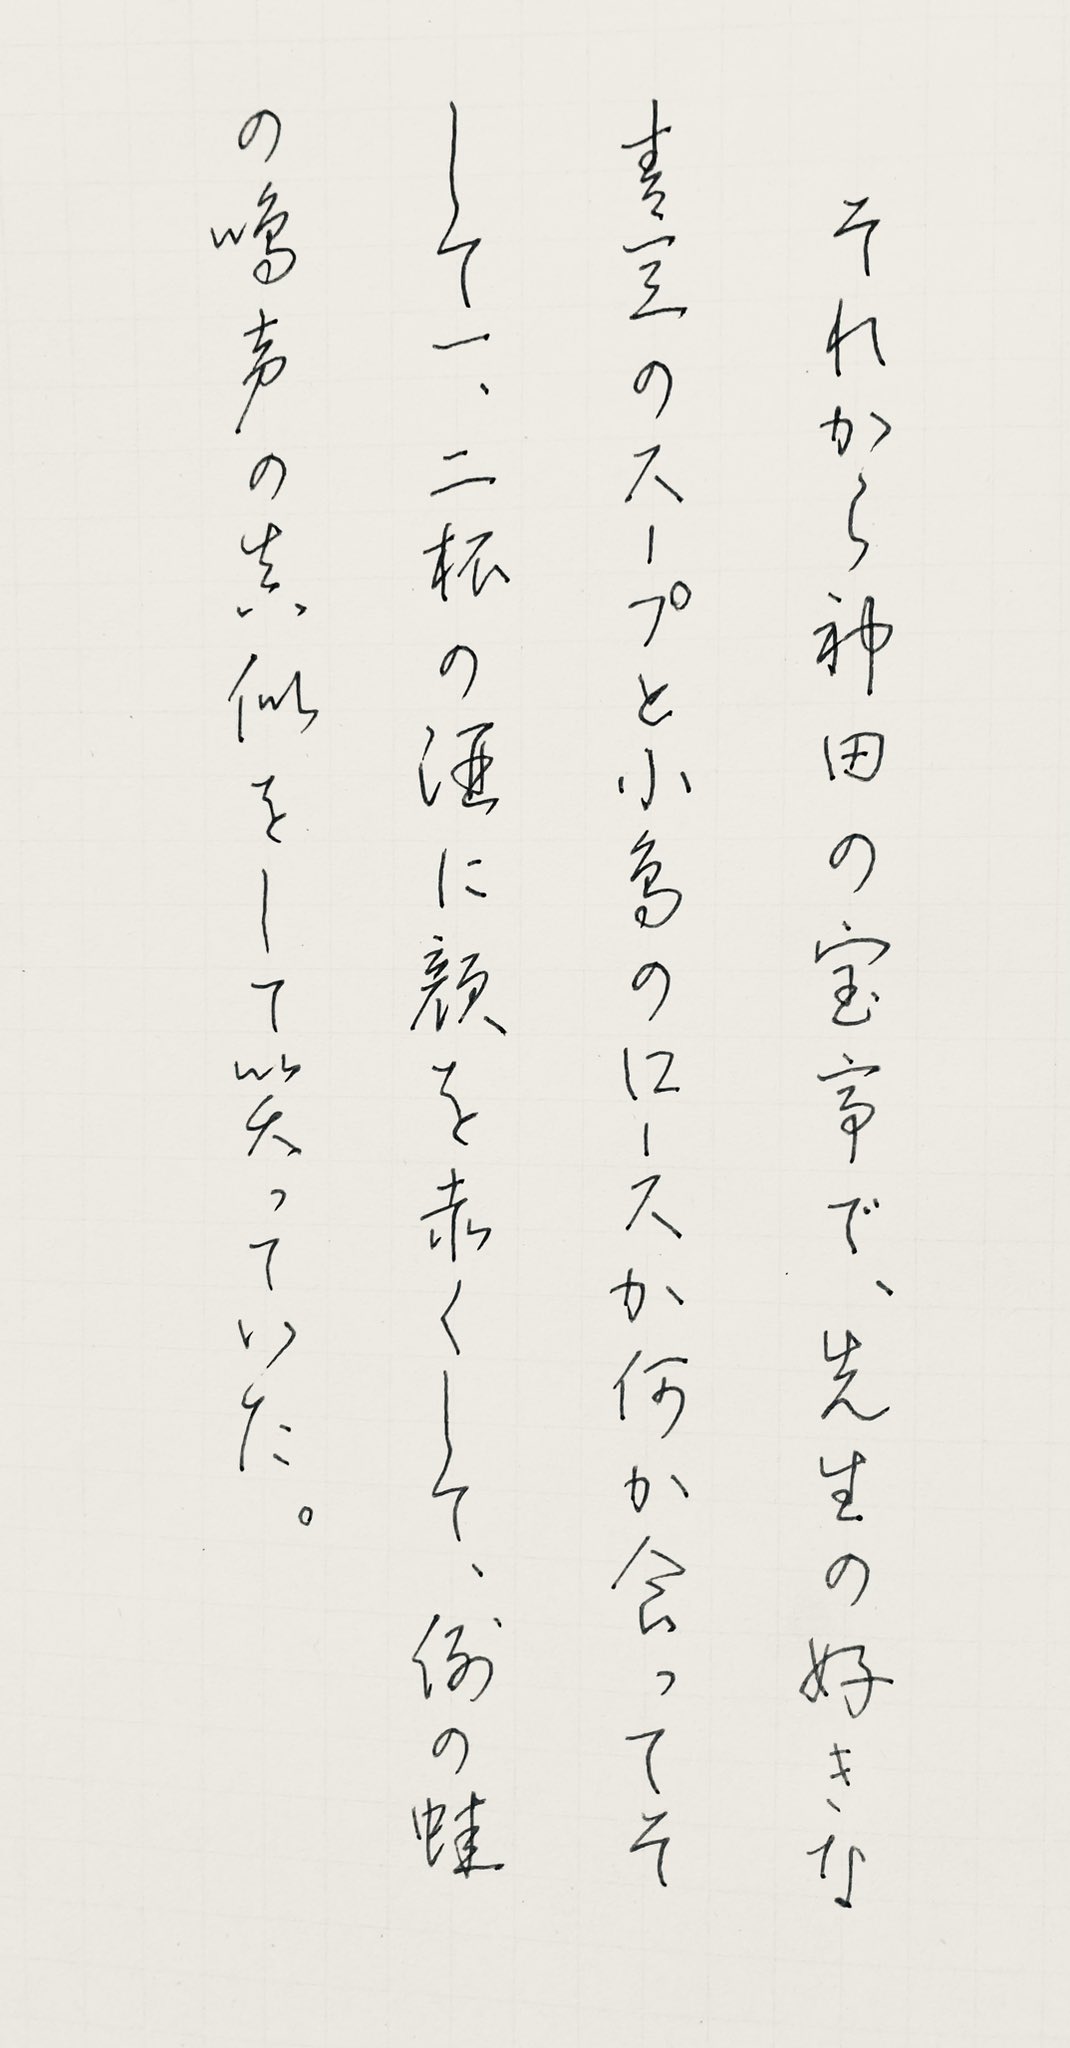 それから神田の宝亭で、先生の好きな
青豆のスープと小鳥のロースか何か食ってそ
して一、二杯の酒に顔を赤くして、例の蛙
の鳴声の真似をして笑っていた。